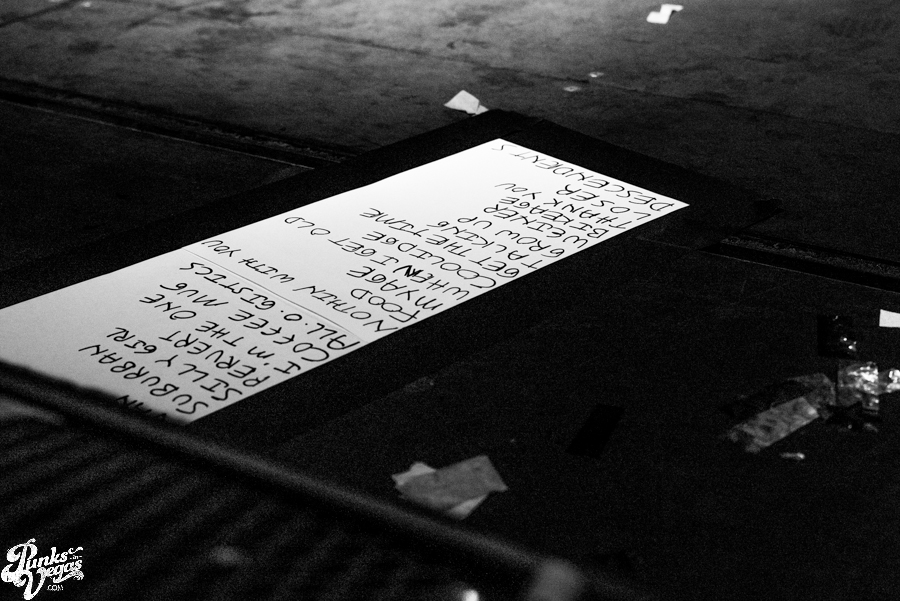 DESCENDENTS
LOSER
THANK YOU
BIKEAGE
WEINER
GROW UP
TALKING
GET THE TIME
COOLIDGE
WHEN I GET OLD
MYAGE
FOOD
NOTHIN WITH YOU
ALL.O.GISTICS
COFFEE MUG
I'M THE ONE
PERVERT
SILLY GIRL
SUBURBAN
Punks
in
Vegas
.COM